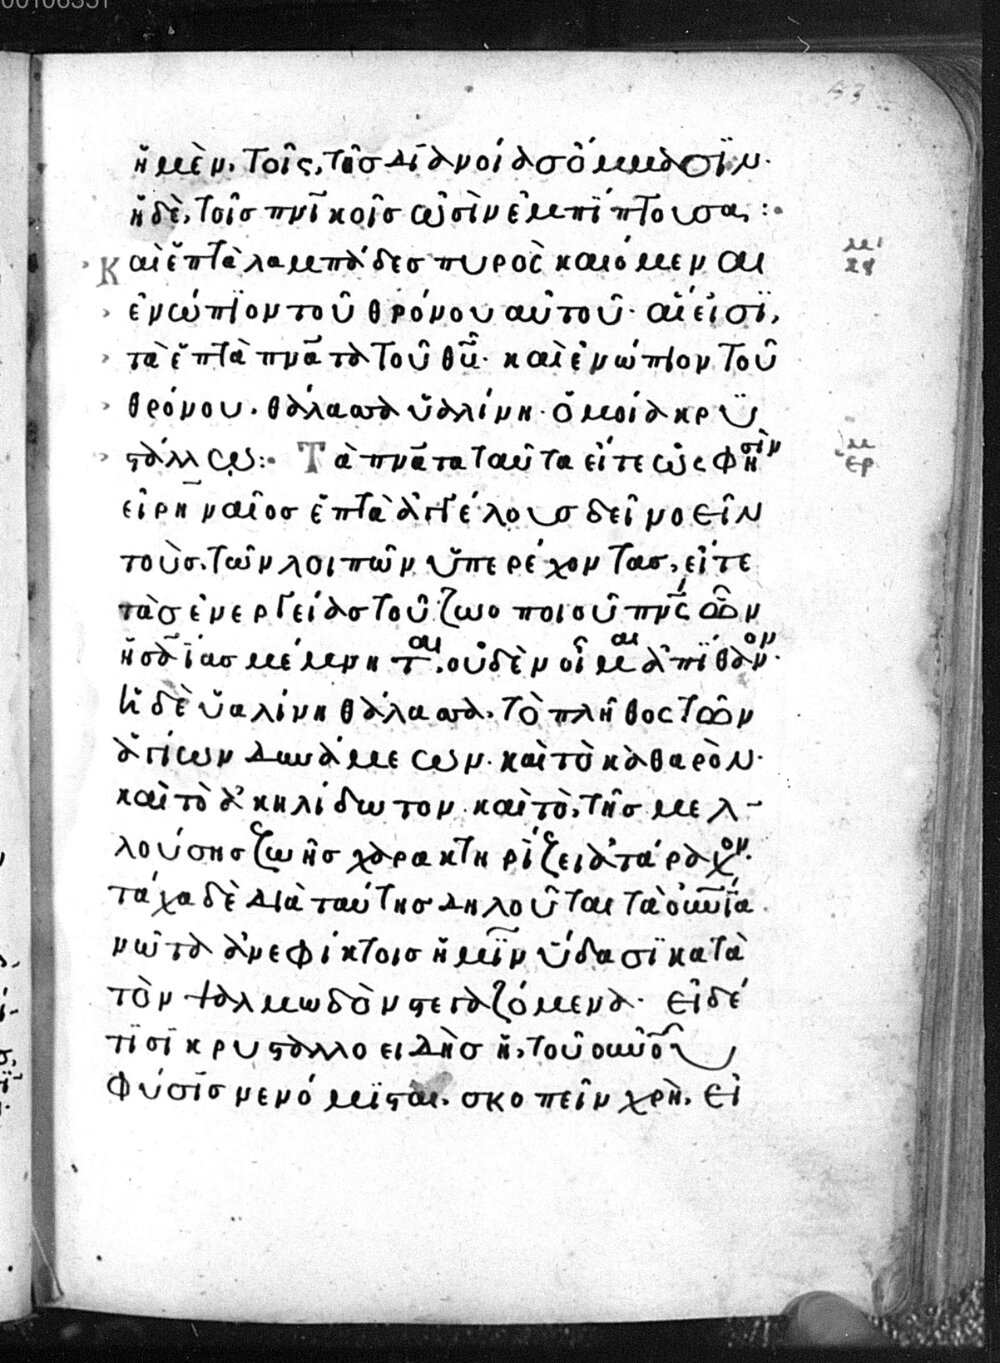 00106331
43
ἡ μὲν, τοῖς, τῆς διανοίας ὄμμασϊν·
ἡ δὲ, τοῖς πνϊκοῖς ὠσὶν ἐμπίπτουσα, :·
Καὶ ἑπτὰ λαμπάδες πυρὸς καιόμεναι
ἐνώπϊον τοῦ θρόνου αὐτοῦ· αἵ εἰσϊ,
τὰ ἑπτὰ πνα τὰ τοῦ θυ· καὶ ἐνώπιον τοῦ
θρόνου. θάλασσα ὑαλίνη· ὁμοία κρυ
στάλλω:· Τὰ πνατα ταῦτα εἴτε ὡς φησὶν
εἰρηναῖος ἑπτὰ ἀγγέλους δεῖ νοεῖν
τοὺς, τῶν λοιπῶν ὑπερέχοντας, εἴτε
τὰς ἐνεργείας τοῦ ζωοποιοῦ πνς ὧν
ἡσαΐας μέμνηται, οὐδὲν οἶμαι ἀπίθανον·
ἡ δὲ ὑαλίνη θάλασσα, τὸ πλῆθος τῶν
ἁγίων δυνάμεων· καὶ τὸ καθαρὸν·
καὶ τὸ ἀκηλίδωτον· καὶ τὸ, τῆς μελ-
λούσης ζωῆς χαρακτηρίζει ἀτάραχον.
τάχα δὲ διὰ ταύτης δηλοῦται τὰ οὐνια
νῶτα ἀνεφίκτοις ἡμῖν ὕδασϊ κατὰ
τὸν ψαλμωδὸν στεγαζόμενα· εἰ δέ
τϊσϊ κρυσταλλοειδὴς ἡ, τοῦ οὐνοῦ
φύσϊς νενόμϊσται, σκοπεῖν χρὴ, εἰ